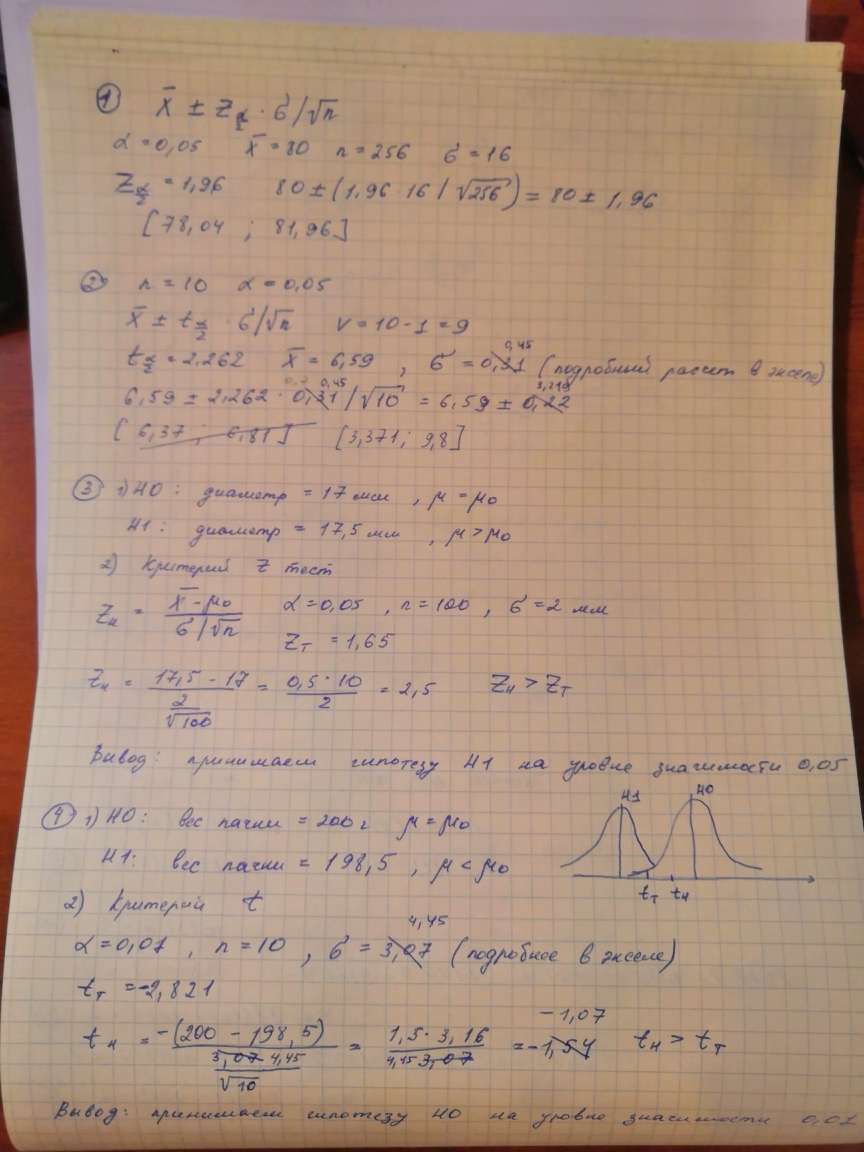 ① X̄ ± Z α/2 · σ/√n
α = 0,05 X̄ = 80 n = 256 σ = 16
Z α/2 = 1,96 80 ± (1,96 · 16 / √256) = 80 ± 1,96
[78,04 ; 81,96]
② n = 10 α = 0,05
X̄ ± t α/2 · σ/√n ν = 10 - 1 = 9
0,45
t α/2 = 2,262 X̄ = 6,59 , σ = 0,31 (подробный расчет в экселе)
0,45 3,219
6,59 ± 2,262 · 0,31 / √10 = 6,59 ± 0,22
[6,37 ; 6,81] [3,371 ; 9,8]
③ 1) H0 : диаметр = 17 мм , μ = μ0
H1 : диаметр = 17,5 мм , μ > μ0
2) Критерий Z тест
Zн = (X̄ - μ0) / (σ/√n) α = 0,05 , n = 100 , σ = 2 мм
ZT = 1,65
Zн = (17,5 - 17) / (2/√100) = (0,5 · 10) / 2 = 2,5 Zн > ZT
Вывод: принимаем гипотезу H1 на уровне значимости 0,05
H1 H0
④ 1) H0 : вес пачки = 200 г μ = μ0
H1 : вес пачки = 198,5 , μ < μ0
tT tн
2) Критерий t
4,45
α = 0,01 , n = 10 , σ = 3,07 (подробнее в экселе)
tT = -2,821
-1,07
tн = -(200 - 198,5) / (3,07 4,45 / √10) = (1,5 · 3,16) / (4,45 3,07) = -1,54 tн > tT
Вывод: принимаем гипотезу H0 на уровне значимости 0,01